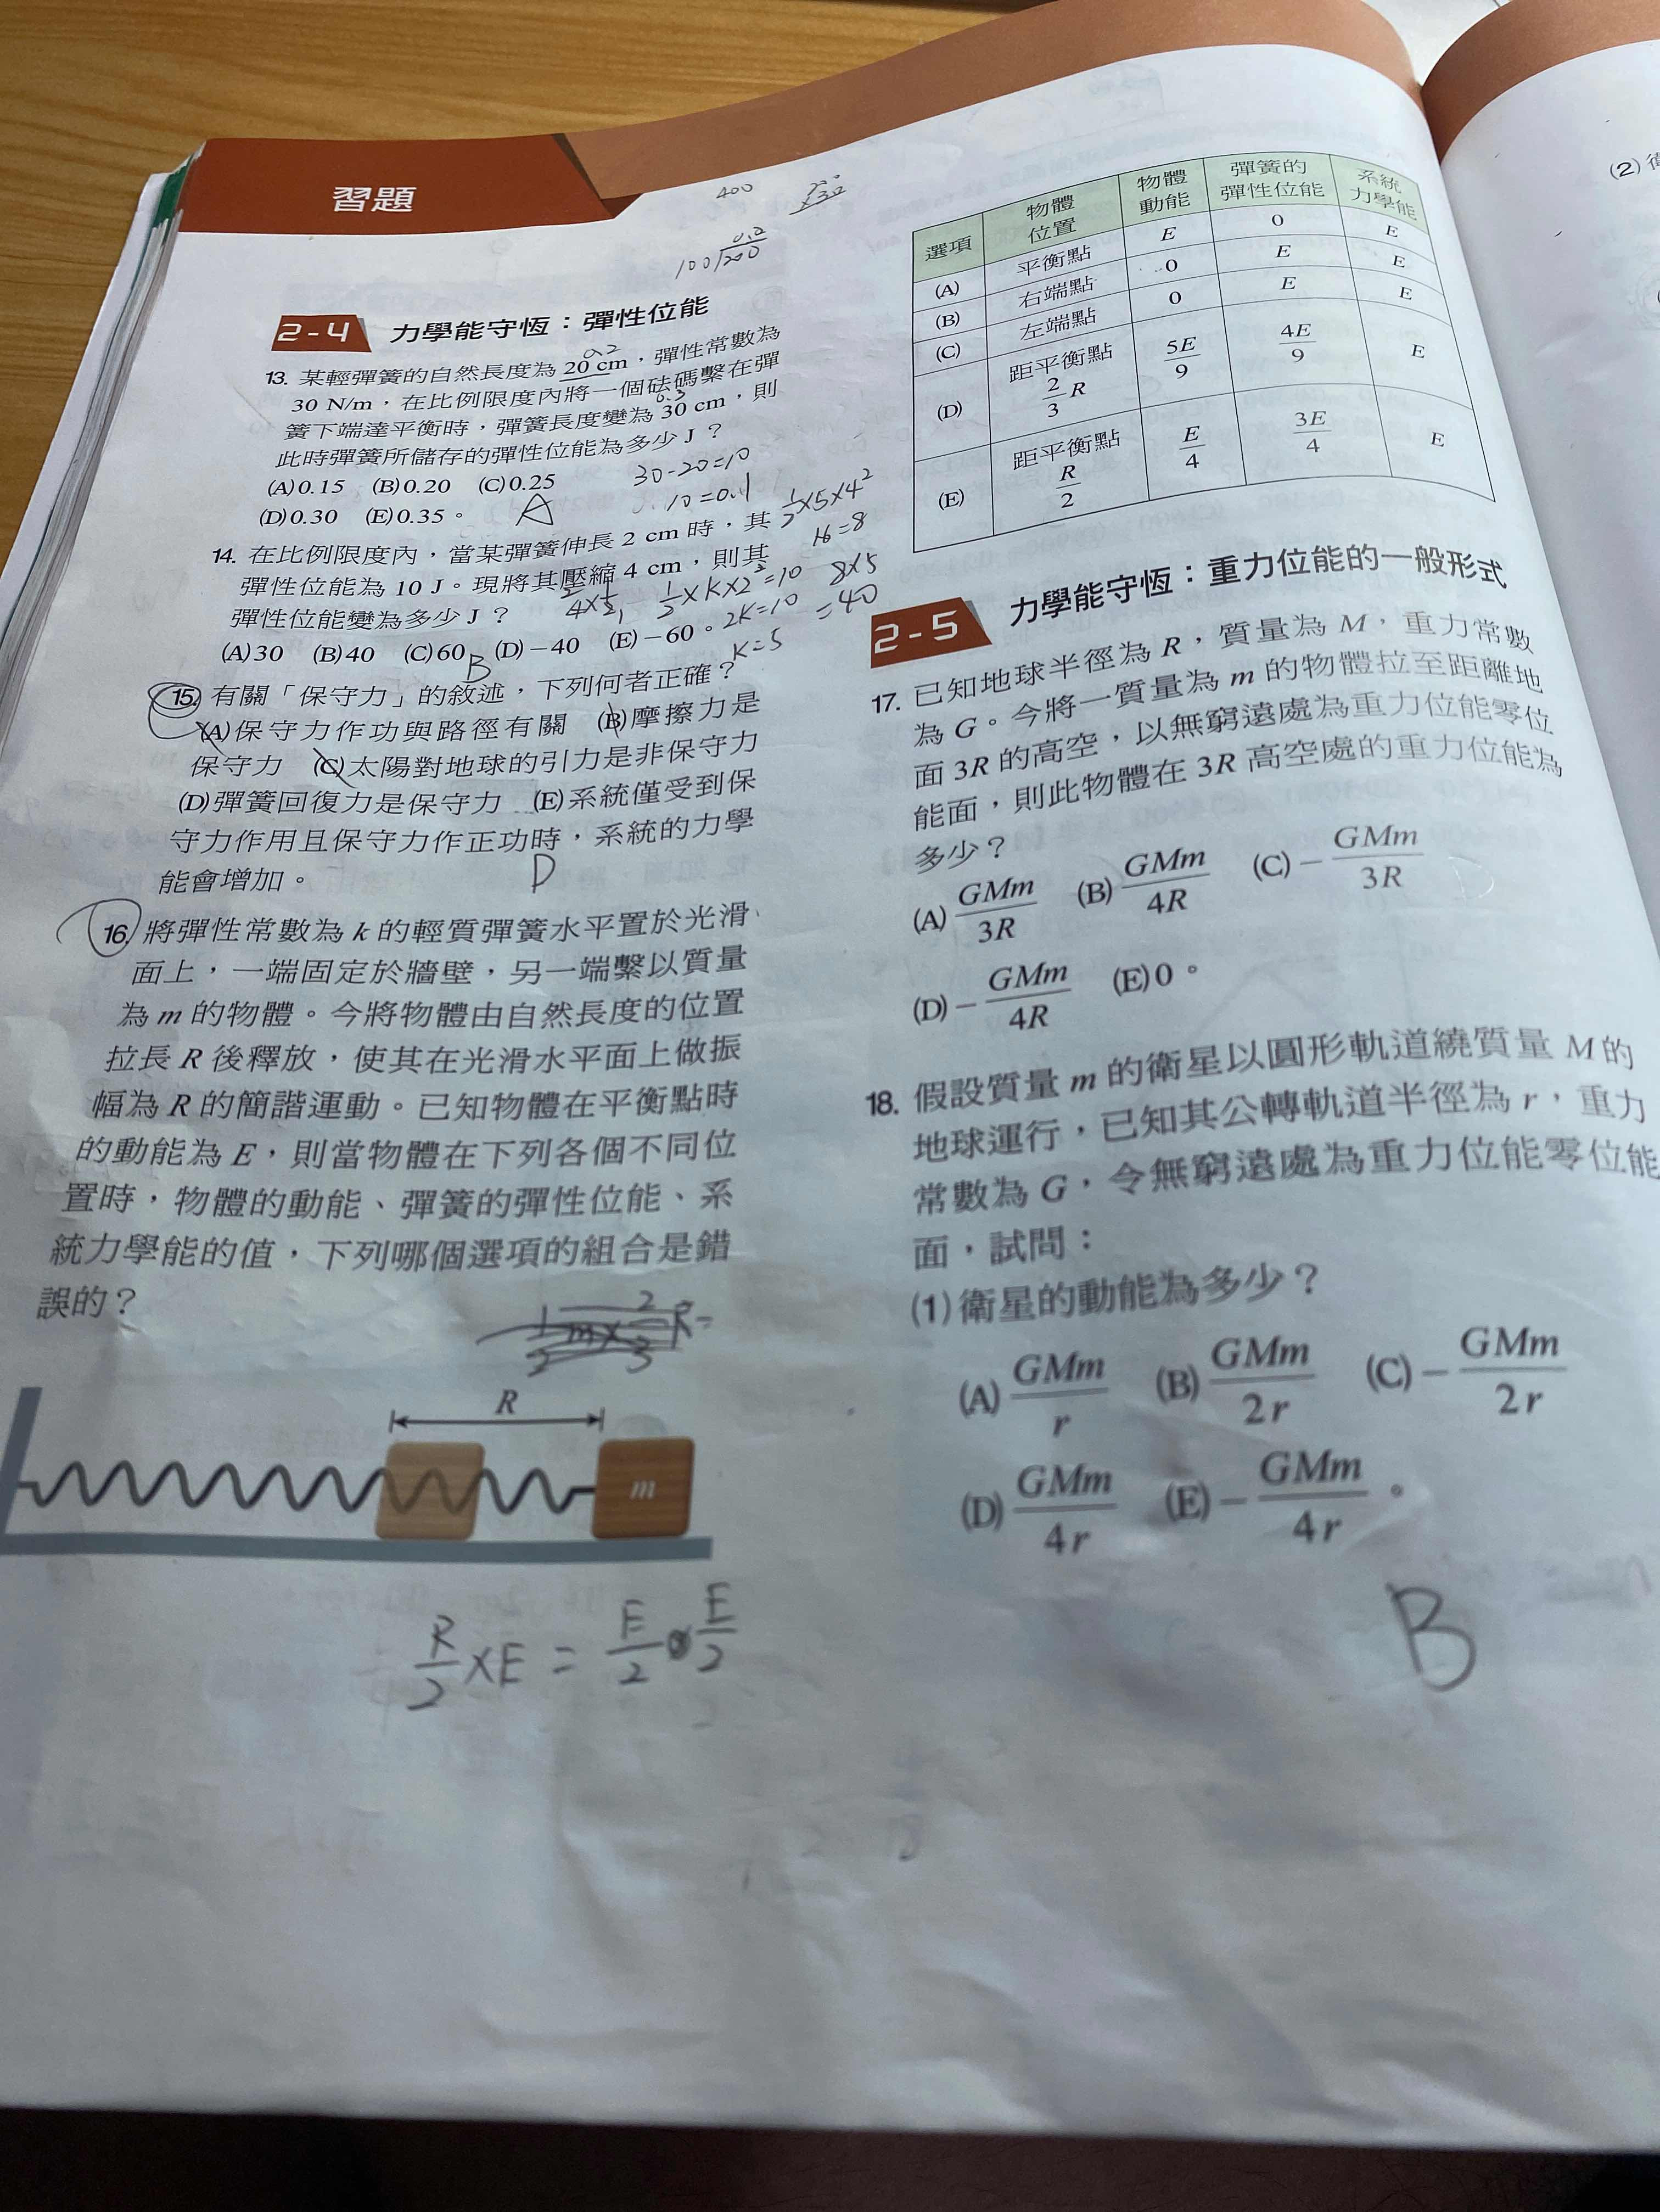 習題
400
100 200 0.2
2-4 力學能守恆：彈性位能
0.2
13. 某輕彈簧的自然長度為 20 cm，彈性常數為
30 N/m，在比例限度內將一個砝碼繫在彈
0.3
簧下端達平衡時，彈簧長度變為 30 cm，則
此時彈簧所儲存的彈性位能為多少 J？
(A)0.15 (B)0.20 (C)0.25
(D)0.30 (E)0.35。
A
30-20=10
10=0.1
14. 在比例限度內，當某彈簧伸長 2 cm 時，其
彈性位能為 10 J。現將其壓縮 4 cm，則其
彈性位能變為多少 J？
(A)30 (B)40 (C)60 (D)−40 (E)−60。
B
1/2×K×2²=10
2K=10
K=5
1/2×5×4²
16=8
8×5
=40
15. 有關「保守力」的敘述，下列何者正確？
(A)保守力作功與路徑有關 (B)摩擦力是
保守力 (C)太陽對地球的引力是非保守力
(D)彈簧回復力是保守力 (E)系統僅受到保
守力作用且保守力作正功時，系統的力學
能會增加。
D
16. 將彈性常數為 k 的輕質彈簧水平置於光滑
面上，一端固定於牆壁，另一端繫以質量
為 m 的物體。今將物體由自然長度的位置
拉長 R 後釋放，使其在光滑水平面上做振
幅為 R 的簡諧運動。已知物體在平衡點時
的動能為 E，則當物體在下列各個不同位
置時，物體的動能、彈簧的彈性位能、系
統力學能的值，下列哪個選項的組合是錯
誤的？
R
m
R/2 ×E = E/2 E/2
選項 物體位置 物體動能 彈簧的彈性位能 系統力學能
(A) 平衡點 E 0 E
(B) 右端點 0 E E
(C) 左端點 0 E E
(D) 距平衡點 2/3 R 5E/9 4E/9 E
(E) 距平衡點 R/2 E/4 3E/4 E
2-5 力學能守恆：重力位能的一般形式
17. 已知地球半徑為 R，質量為 M，重力常數
為 G。今將一質量為 m 的物體拉至距離地
面 3R 的高空，以無窮遠處為重力位能零位
能面，則此物體在 3R 高空處的重力位能為
多少？
(A) GMm/3R (B) GMm/4R (C) − GMm/3R
(D) − GMm/4R (E) 0。
18. 假設質量 m 的衛星以圓形軌道繞質量 M 的
地球運行，已知其公轉軌道半徑為 r，重力
常數為 G，令無窮遠處為重力位能零位能
面，試問：
(1)衛星的動能為多少？
(A) GMm/r (B) GMm/2r (C) − GMm/2r
(D) GMm/4r (E) − GMm/4r。
B
(2)